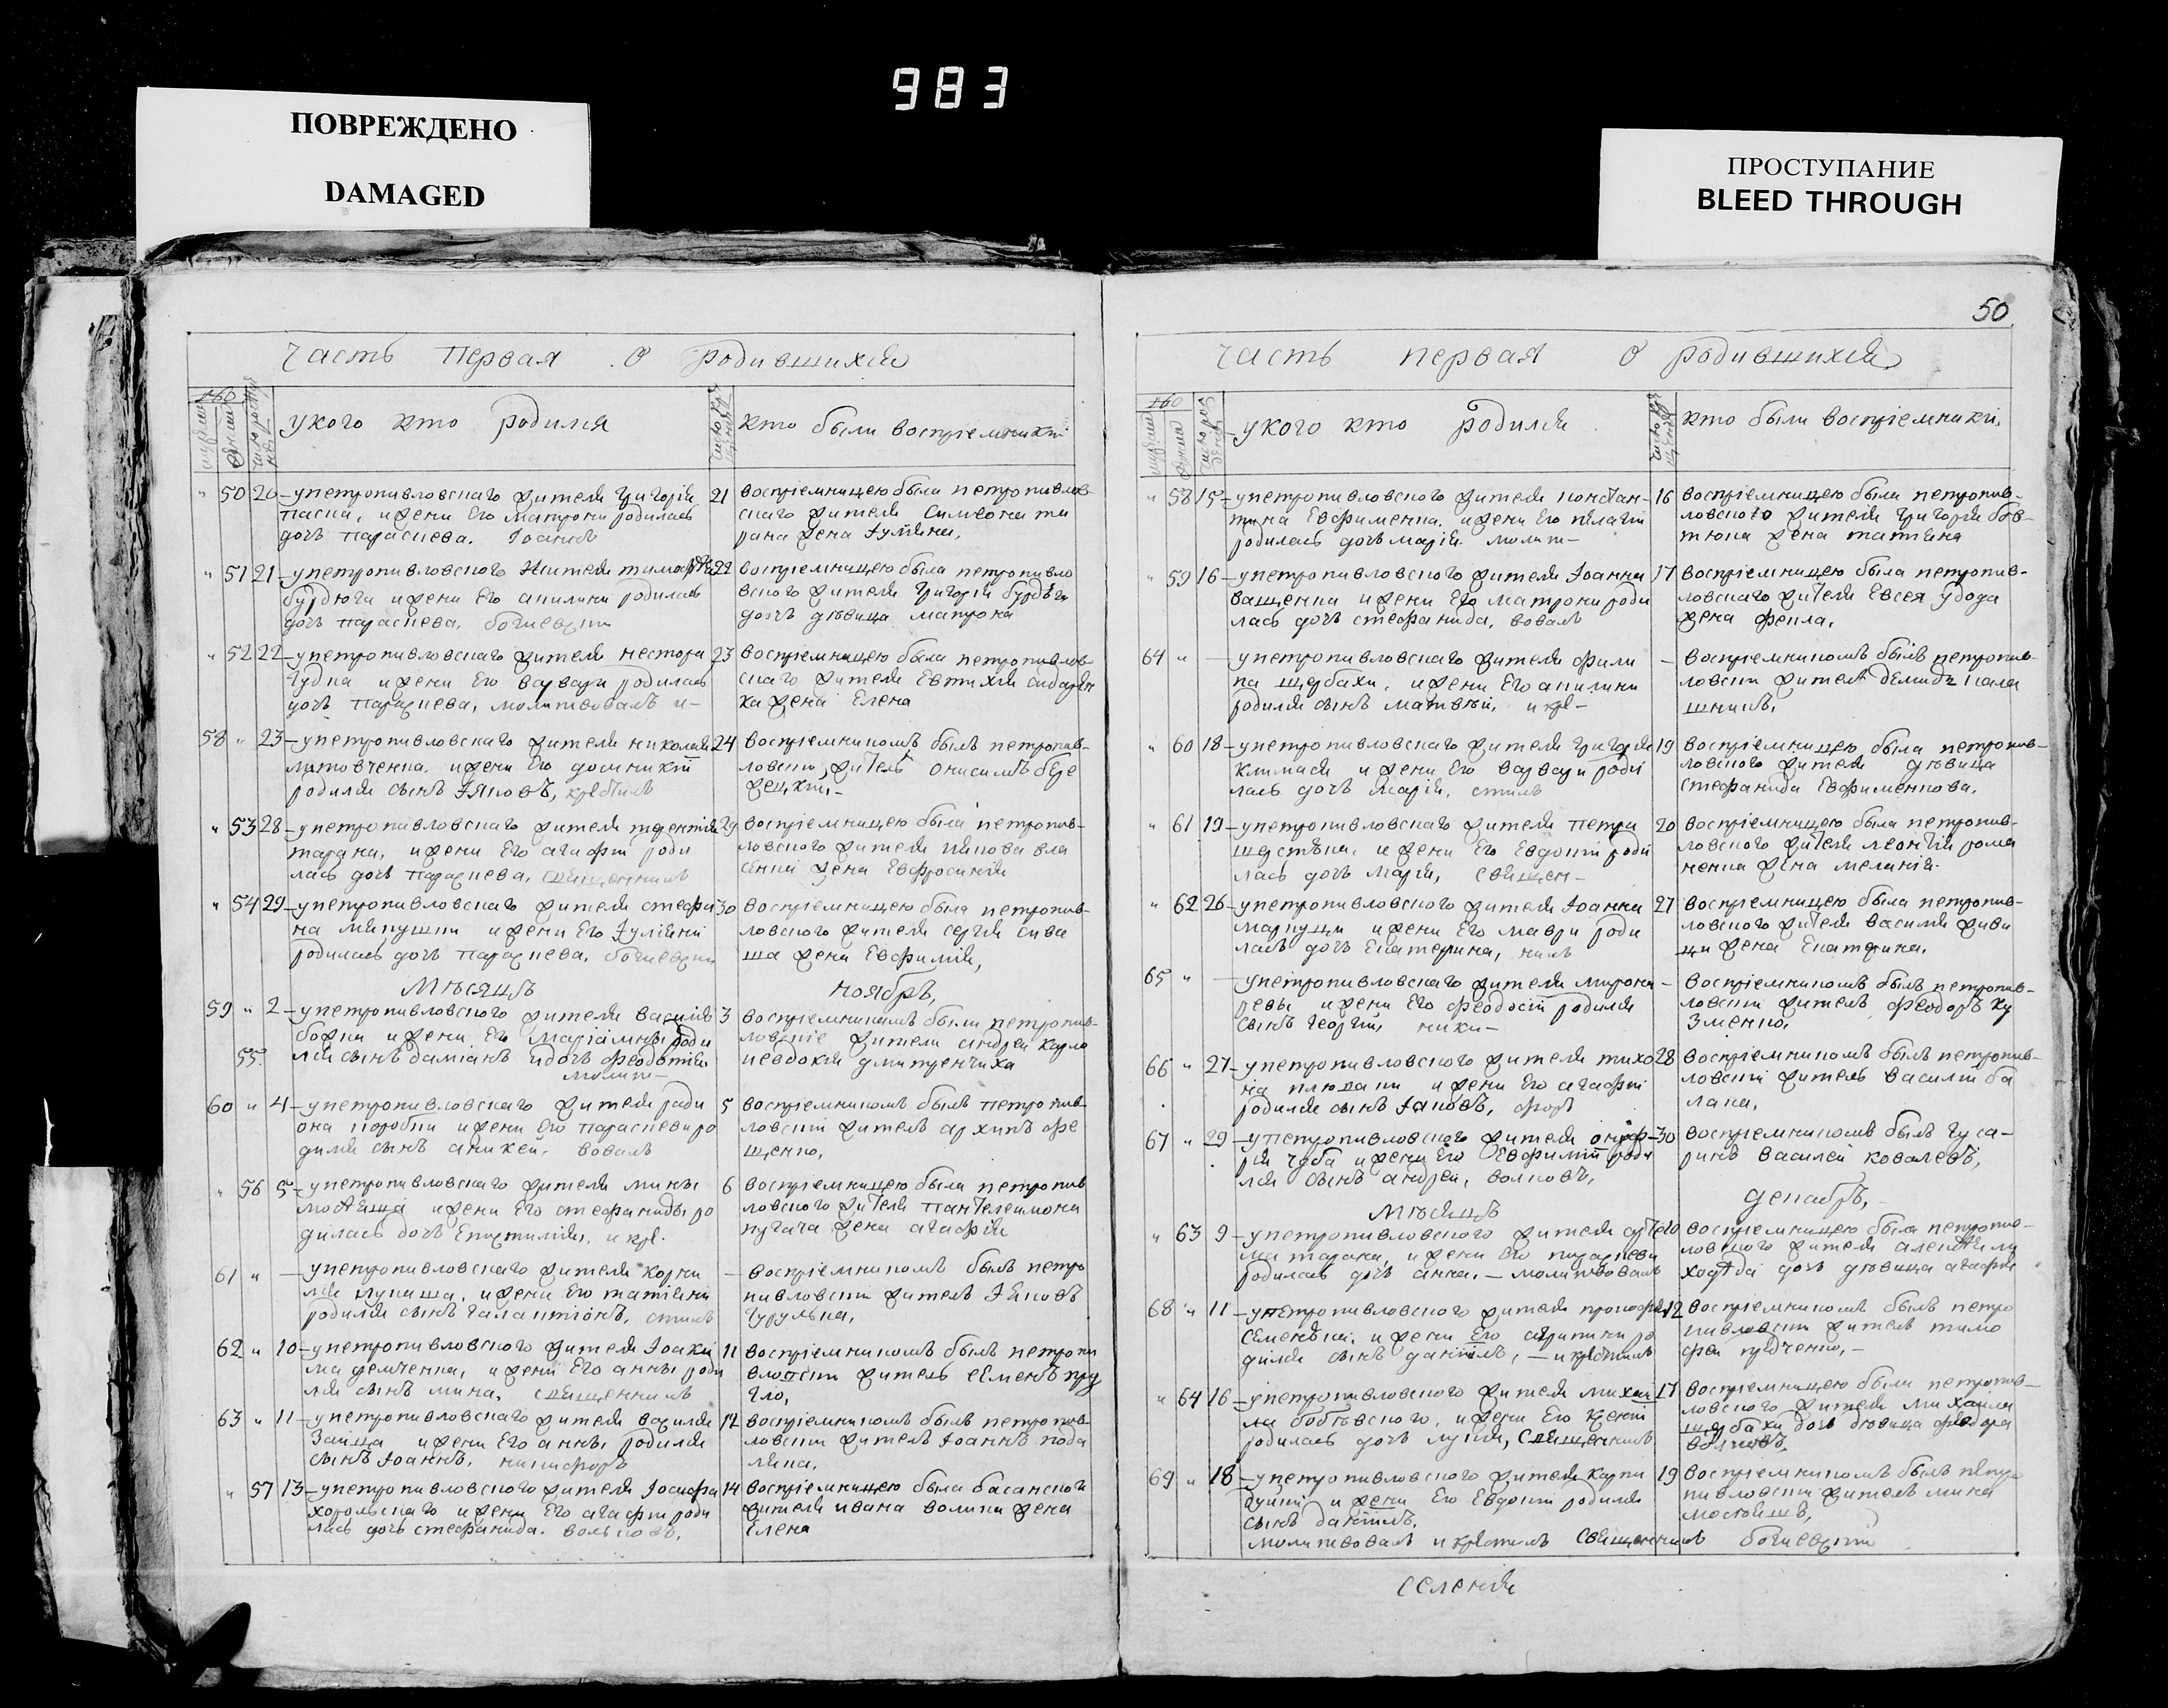 983
ПОВРЕЖДЕНО
DAMAGED
ПРОСТУПАНИЕ
BLEED THROUGH
часть первая о родившихся
укого кто родился
кто были воспріемники
50 20 упетропавловскаго жителя григорія
паски, ижены Его матроны родилась
дочь параскева. Іоаннъ
21 воспріемницею была петропавлов-
скаго жителя Симеона та
рана жена Іуліяна,
51 21 упетропавловского жителя тимофея
бурдюги ижены Его акилины родилась
дочь параскева,
22 воспріемницею была петропавло
вского жителя григорія бурдюги
дочь дѣвица матрона
52 22 упетропавловскаго жителя нестора
гудна ижены Его варвары родилась
дочь параскева, молитвовалъ и-
23 воспріемницею была петропавлов-
скаго жителя Евтихія сидорен
ка жена Елена
58 23 упетропавловскаго жителя николая
литовченка. ижены Его домникіи
родился сынъ Іяковъ, крестилъ
24 воспріемникомъ былъ петропав-
ловскій житель онисимъ бере
жецкій,
53 28 упетропавловскаго жителя терентія
тарана, ижены Его агафіи роди
лась дочь параскева, священникъ
29 воспріемницею была петропав-
ловского жителя иякова вла
сенка жена Евфросинія
54 29 упетропавловскаго жителя стефа
на микушки ижены Его Іуліяны
родилась дочь параскева,
30 воспріемницею была петропав-
ловского жителя сергія сива
ша жена Евфимія,
Мѣсяцъ ноябрь,
59 2 упетропавловского жителя василія
ижены Его Маріамны роди
55 лся сынъ даміанъ идочь феодотія
молит-
3 воспріемниками были петропав-
ловскіе жители андрей карпо
иевдокія дмитренчиха
60 4 упетропавловскаго жителя роди
она коробки ижены Его параскевы ро
дился сынъ аникей. вовалъ
5 воспріемникомъ былъ петропав-
ловскій житель архипъ фе
щенко,
56 5 упетропавловскаго жителя мины
ижены Его стефаниды ро
дилась дочь Епистимія, и кре-
6 воспріемницею была петропав
ловского жителя пантелеимона
пугача жена агафія
61 упетропавловскаго жителя корни
лія лупаша, ижены Его татіяны
родился сынъ галактіонъ, стилъ
воспріемникомъ былъ петро
павловскій житель Іяковъ
62 10 упетропавловского жителя Іоаки
ма демченка, ижены Его анны роди
лся сынъ мина, священникъ
11 воспріемникомъ былъ петропа
вловскій житель Семенъ
63 11 упетропавловскаго жителя василія
Заица ижены Его анны родился
сынъ Іоаннъ, никифоръ
12 воспріемникомъ былъ петропав
ловскій житель Іоаннъ кода
лика,
57 13 упетропавловского жителя Іосифа
хорольскаго ижены Его агафіи роди
лась дочь стефанида. вольковъ,
14 воспріемницею была басанского
жителя ивана волика жена
Елена
50
часть первая о родившихся
укого кто родился
кто были воспріемники,
58 15 упетропавловского жителя констан-
тина Евфименка. ижены Его пелагіи
родилась дочь марія. молит-
16 воспріемницею была петропав-
ловского жителя григорія бов-
тюна жена татіяна
59 16 упетропавловского жителя Іоанна
ващенка ижены Его матроны роди
лась дочь стефанида, вовалъ
17 воспріемницею была петропав-
ловскаго жителя Евсея удода
жена фекла,
64 упетропавловскаго жителя фили
па щербахи, ижены Его акилины
родился сынъ матвѣй, и кре-
воспріемникомъ былъ петропав-
ловскій житель демидъ кала
шникъ,
60 18 упетропавловскаго жителя григорія
климася ижены Его варвары роди
лась дочь марія, стилъ
19 воспріемницею была петропав-
ловского жителя дѣвица
стефанида Евфименкова,
61 19 упетропавловскаго жителя петра
ижены Его Евдокіи роди
лась дочь марія, священ-
20 воспріемницею была петропав-
ловского жителя леонтія рома
ненка жена меланія.
62 26 упетропавловского жителя Іоанна
ижены Его мавры роди
лась дочь Екатерина, никъ
27 воспріемницею была петропав-
ловского жителя василія
жена Екатерина,
65 упетропавловскаго жителя мирона
ревы ижены Его феодосіи родился
сынъ георгій, ники-
воспріемникомъ былъ петропав-
ловскій житель феодоръ ку
зменко,
66 27 упетропавловского жителя тихо
на плюшки ижены Его агафіи
родился сынъ Іяковъ, форъ
28 воспріемникомъ былъ петропав-
ловскій житель василій ба
лака,
67 29 упетропавловского жителя онуф-
рія чуба ижены Его Евфиміи роди
лся сынъ андрей, волковъ,
30 воспріемникомъ былъ гуса-
ринъ василей ковалевъ,
Мѣсяцъ декабрь,
63 9 упетропавловского жителя артемо
ма тарана, ижены Его параскевы
родилась дочь анна, - молитвовалъ
10 воспріемницею была петропав-
ловского жителя
дочь дѣвица агафія
68 11 упетропавловского жителя прокофія
ижены Его агрипины ро
дился сынъ даніилъ, - и крестилъ
12 воспріемникомъ былъ петро
павловскій житель тимо
фей
64 16 упетропавловского жителя михаи
ла ижены Его Ксеніи
родилась дочь лукія, священникъ
17 воспріемницею была петропав-
ловского жителя михаила
щербахи дочь дѣвица феодора
69 18 упетропавловского жителя карпа
ижены Его Евдокіи родился
сынъ даніилъ,
19 воспріемникомъ былъ петро
павловскій житель мина
молитвовалъ и крестилъ священникъ
селенія